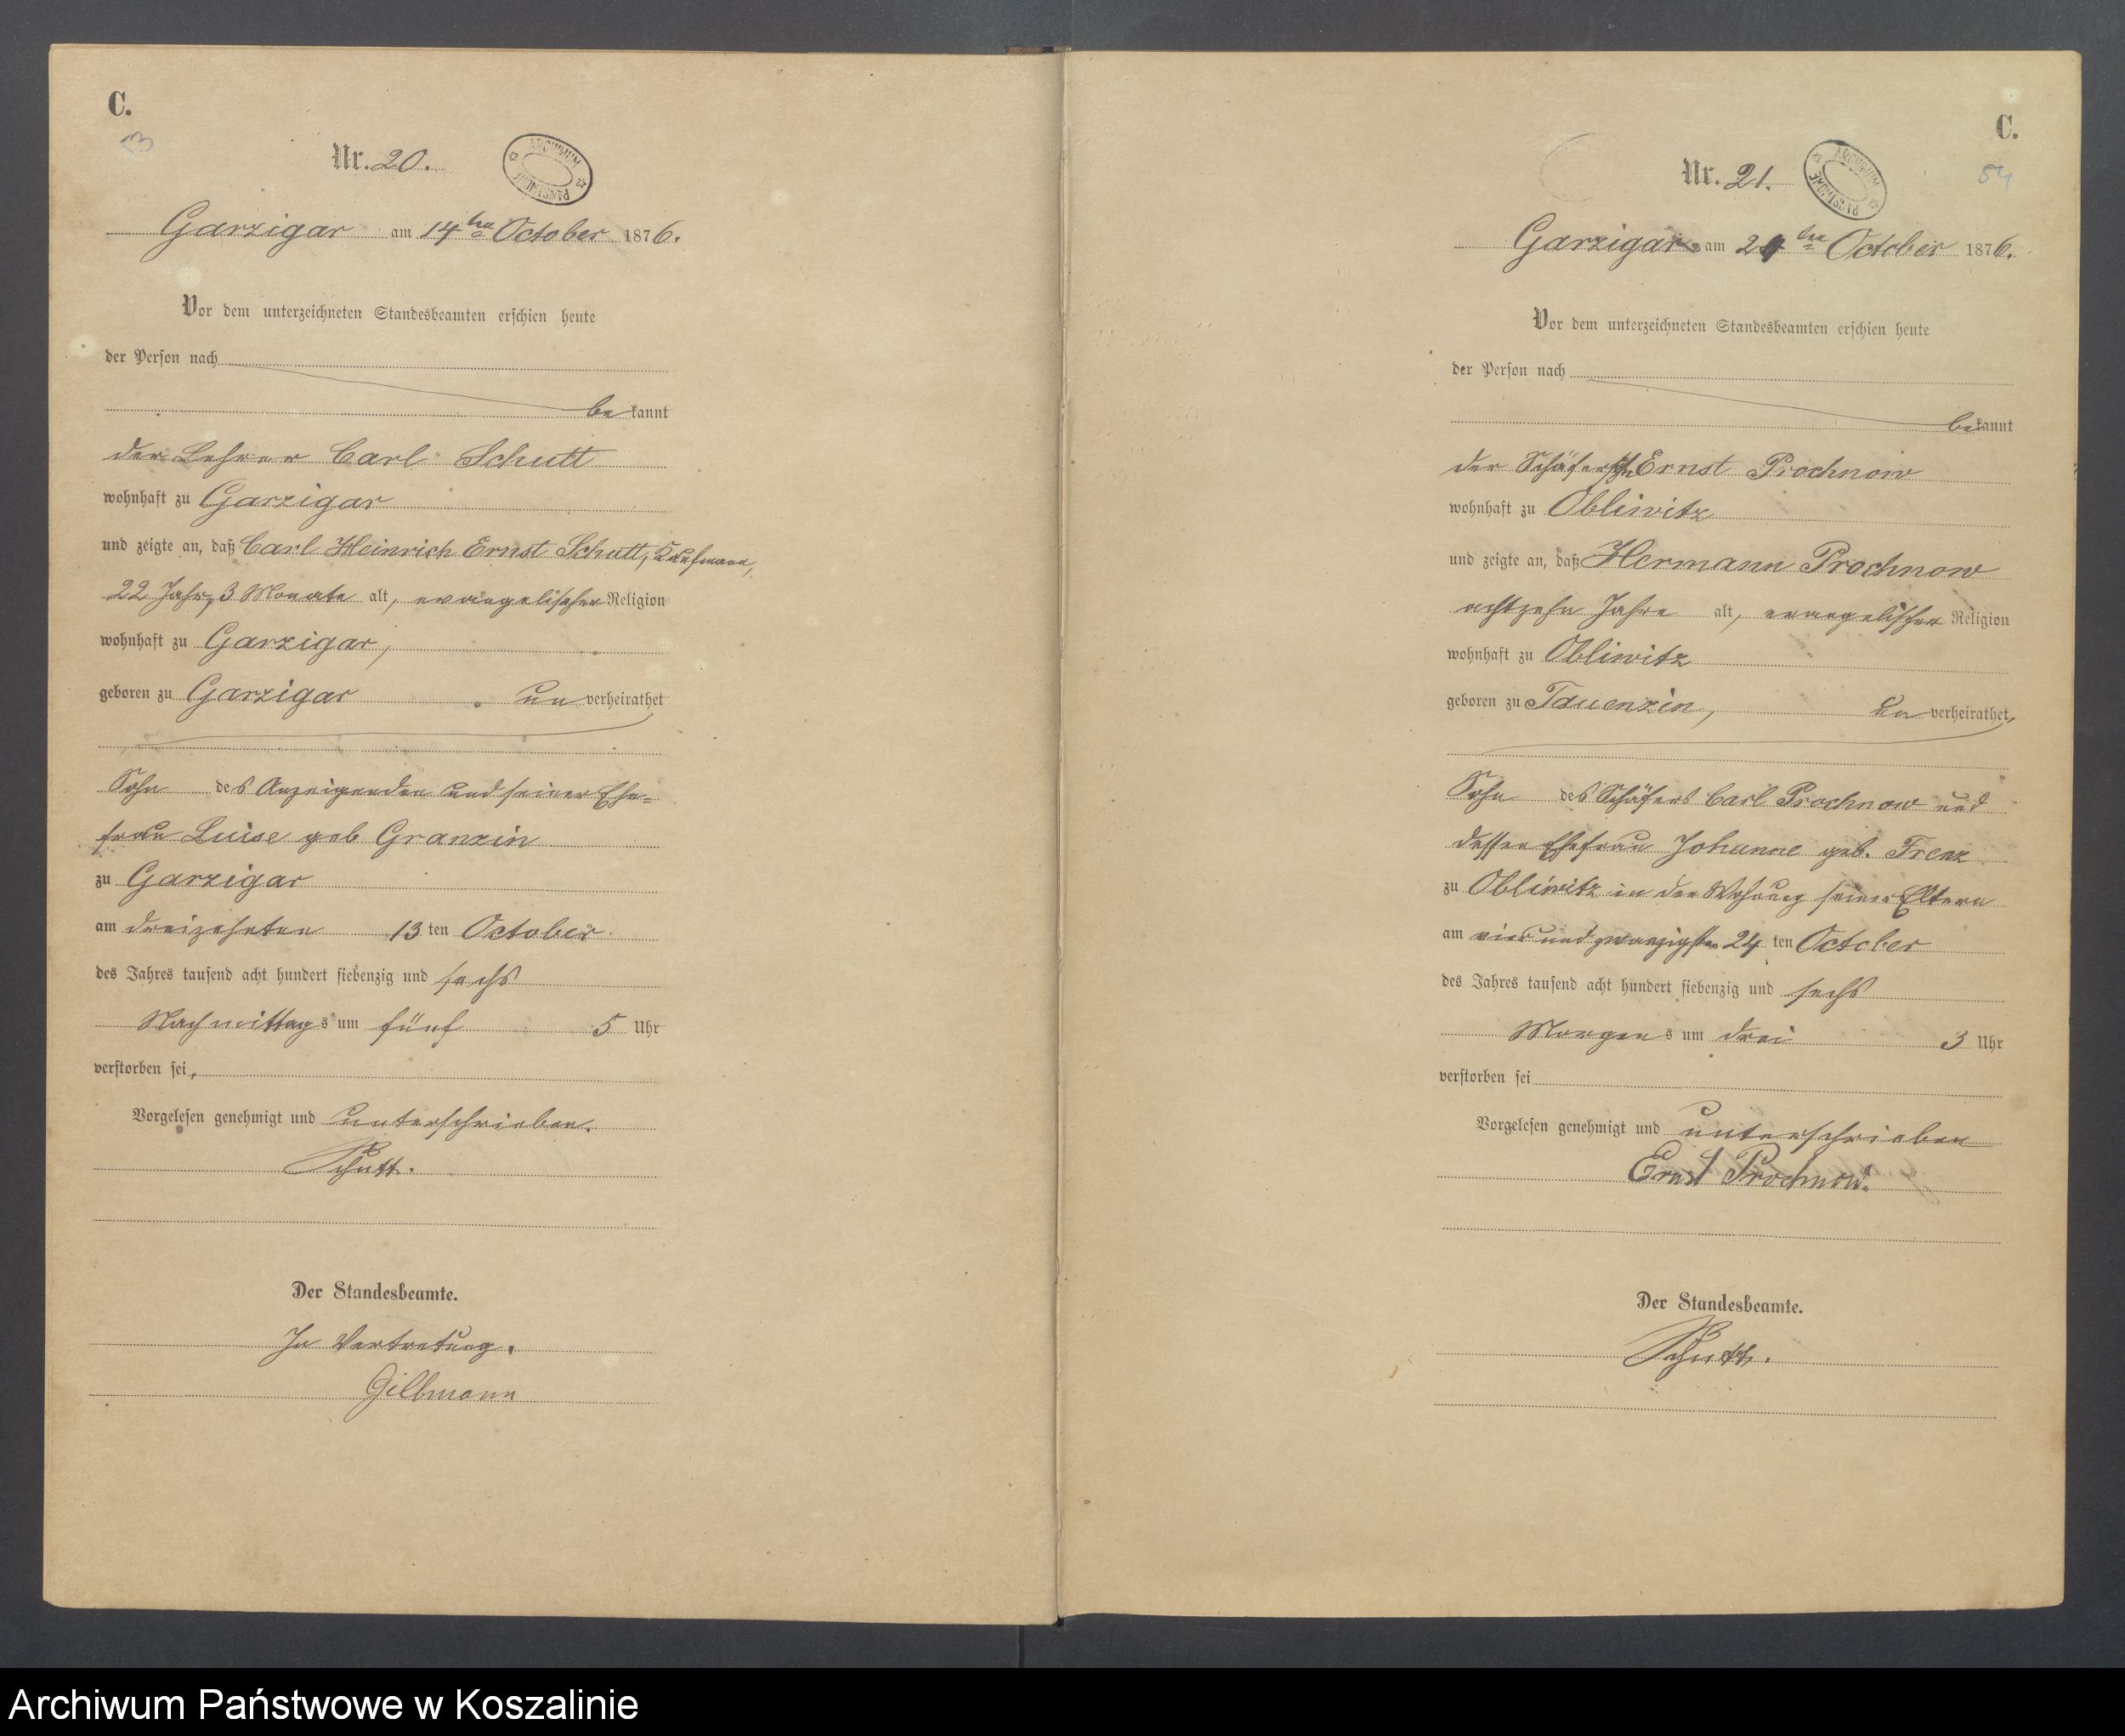 C.
53
Nr. 20.
ARCHIWUM PAŃSTWOWE
Garzigar am 14ten October 1876.
Vor dem unterzeichneten Standesbeamten erschien heute
der Person nach
be kannt
der Lehrer Carl Schutt
wohnhaft zu Garzigar
und zeigte an, daß Carl Heinrich Ernst Schutt, Kaufmann,
22 Jahr, 3 Monate alt, evangelischer Religion
wohnhaft zu Garzigar,
geboren zu Garzigar un verheirathet
Sohn des Anzeigenden und seiner Ehe=
frau Luise geb Granzin
zu Garzigar
am dreizehnten 13 ten October
des Jahres tausend acht hundert siebenzig und sechs
Nachmittags um fünf 5 Uhr
verstorben sei,
Vorgelesen genehmigt und unterschrieben.
Schutt.
Der Standesbeamte.
In Vertretung.
Gillmann
C.
54
Nr. 21.
ARCHIWUM PAŃSTWOWE
Garzigar am 24ten October 1876.
Vor dem unterzeichneten Standesbeamten erschien heute
der Person nach
be kannt
der Ernst Prochnow
wohnhaft zu Obliwitz
und zeigte an, daß Hermann Prochnow
achtzehn Jahre alt, evangelischer Religion
wohnhaft zu Obliwitz
geboren zu Tauenzin, un verheirathet,
Sohn des Schäfers Carl Prochnow und
dessen Ehefrau Johanne geb. Frenz
zu Obliwitz in der Wohnung seiner Eltern
am vier und zwanzigsten 24 ten October
des Jahres tausend acht hundert siebenzig und sechs
Morgens um drei 3 Uhr
verstorben sei
Vorgelesen genehmigt und unterschrieben
Ernst Prochnow.
Der Standesbeamte.
Schutt.
Archiwum Państwowe w Koszalinie